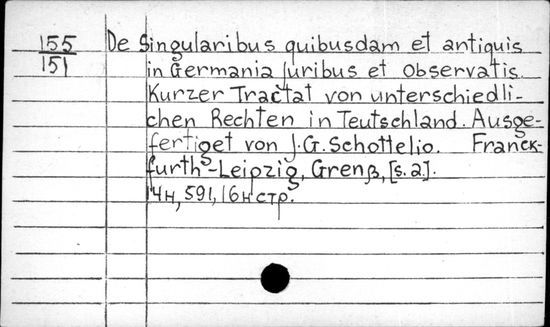 155
151
De Singularibus quibusdam et antiquis
in Germania Juribus et Observatis.
Kurzer Tractat von unterschiedli-
chen Rechten in Teutschland. Ausge-
fertiget von J.G. Schottelio. Franck-
furth-Leipzig, Grenß, [s.a.].
14н, 591, 16н стр.